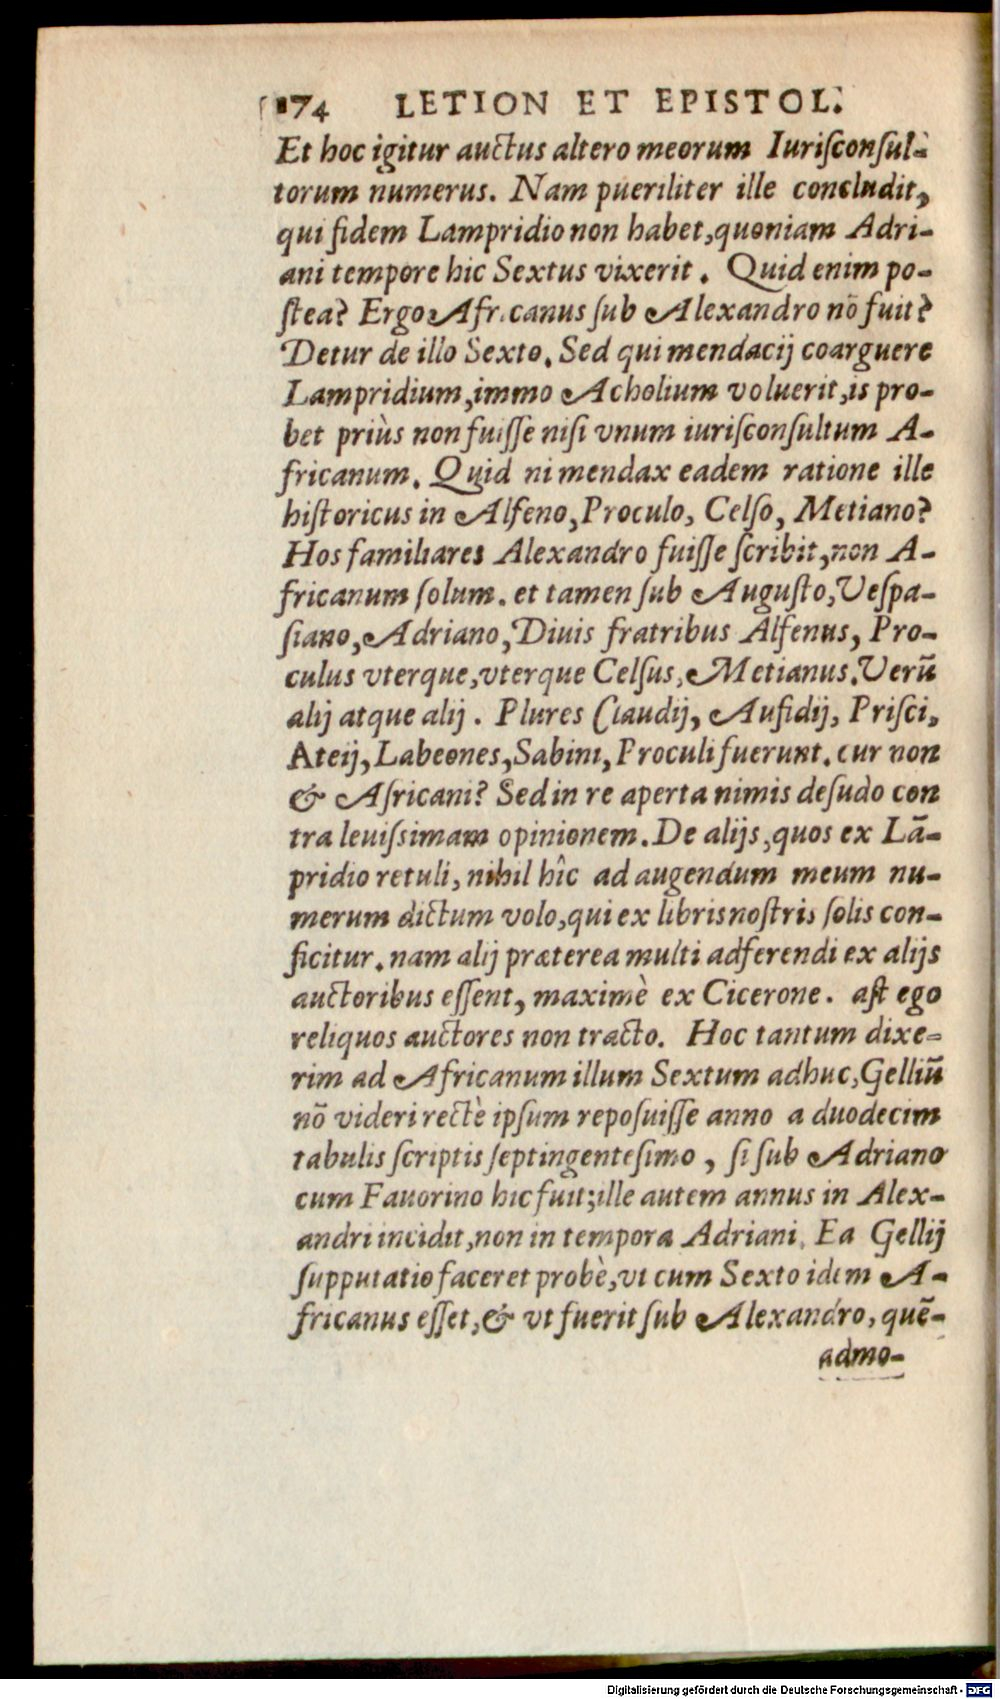 174 LETION ET EPISTOL.
Et hoc igitur auctus altero meorum Iuriſconſul-
torum numerus. Nam pueriliter ille concludit,
qui fidem Lampridio non habet, quoniam Adri-
ani tempore hic Sextus vixerit. Quid enim po-
ſtea? Ergo Africanus ſub Alexandro nõ fuit?
Detur de illo Sexto. Sed qui mendacij coarguere
Lampridium, immo Acholium voluerit, is pro-
bet priùs non fuiſſe niſi vnum iuriſconſultum A-
fricanum. Quid ni mendax eadem ratione ille
hiſtoricus in Alfeno, Proculo, Celſo, Metiano?
Hos familiares Alexandro fuiſſe ſcribit, non A-
fricanum ſolum. et tamen ſub Auguſto, Veſpa-
ſiano, Adriano, Diuis fratribus Alfenus, Pro-
culus vterque, vterque Celſus, Metianus. Verũ
alij atque alij. Plures Claudij, Aufidij, Priſci,
Ateij, Labeones, Sabini, Proculi fuerunt. cur non
& Africani? Sed in re aperta nimis deſudo con
tra leuiſsimam opinionem. De alijs, quos ex Lã-
pridio retuli, nihil hîc ad augendum meum nu-
merum dictum volo, qui ex libris noſtris ſolis con-
ficitur. nam alij præterea multi adferendi ex alijs
auctoribus eſſent, maximè ex Cicerone. aſt ego
reliquos auctores non tracto. Hoc tantum dixe-
rim ad Africanum illum Sextum adhuc, Gelliũ
nõ videri rectè ipſum repoſuiſſe anno a duodecim
tabulis ſcriptis ſeptingenteſimo, ſi ſub Adriano
cum Fauorino hic fuit; ille autem annus in Alex-
andri incidit, non in tempora Adriani. Ea Gellij
ſupputatio faceret probè, vt cum Sexto idem A-
fricanus eſſet, & vt fuerit ſub Alexandro, quẽ-
admo-
Digitalisierung gefördert durch die Deutsche Forschungsgemeinschaft - DFG